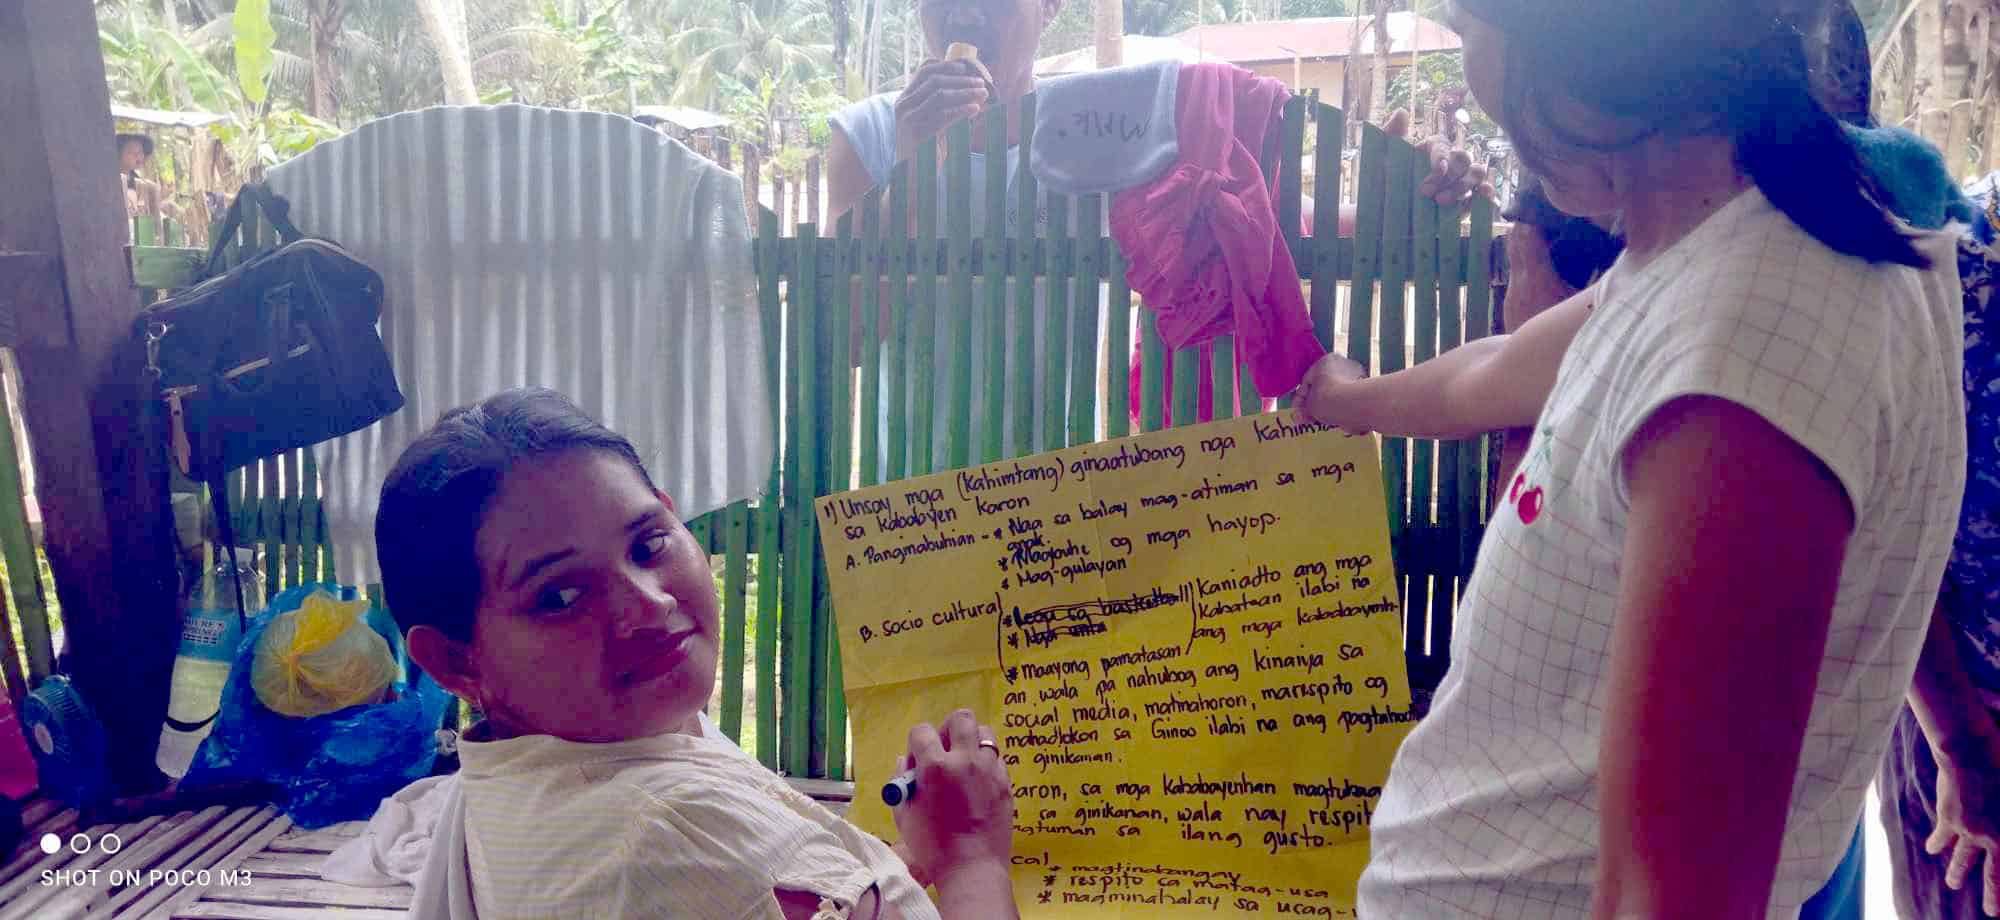 1) Unsay mga (kahimtang) ginaatubang nga
sa kababayen karon
A. Panginabuhian - * Naa sa balay mag-atiman sa mga
anak.
* Magbuhi og mga hayop.
* Mag-gulayan
B. Socio cultural
Kaniadto ang mga
kabataan ilabi na
ang mga kababayenh-
* maayong pamatasan
an wala pa nahubog ang kinaiya sa
social media, matinahoron, marespito og
mahadlokon sa Ginoo ilabi na ang
sa ginikanan.
karon, sa mga kababayenhan
sa ginikanan, wala nay respit
sa ilang gusto.
cal
* magtinabangay
* respito sa matag-usa
* magminahalay sa usag-
SHOT ON POCO M3